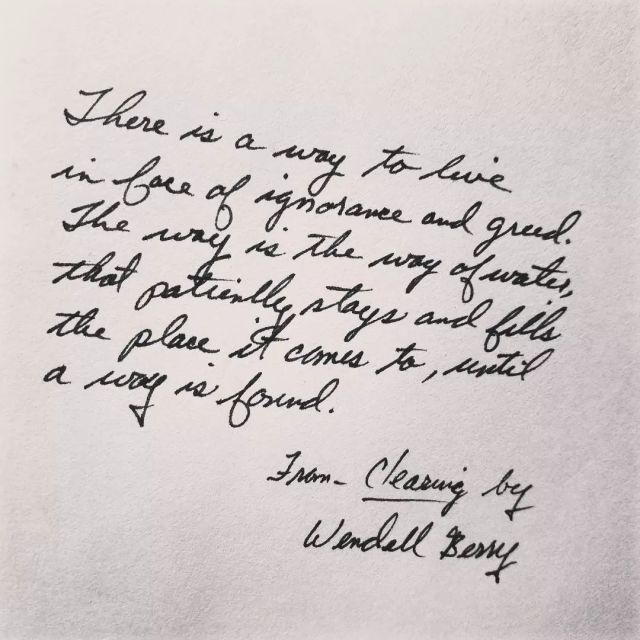 There is a way to live
in face of ignorance and greed.
The way is the way of water,
that patiently stays and fills
the place it comes to, until
a way is found.
From- Clearing by
Wendall Berry